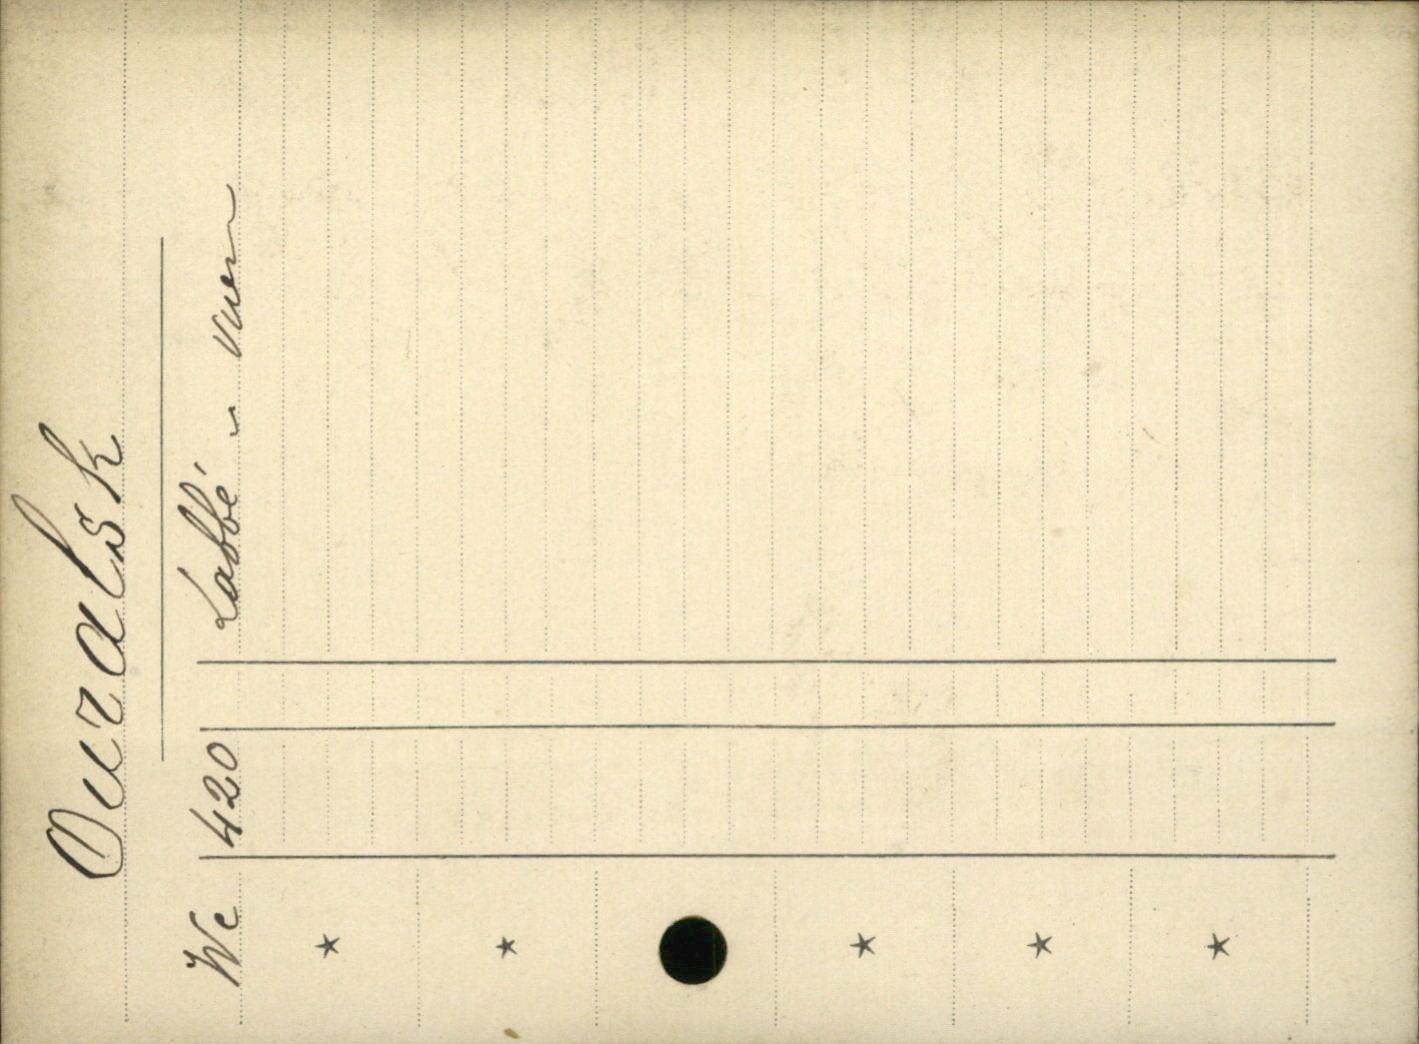 Ouralsk
We 420 Labbé